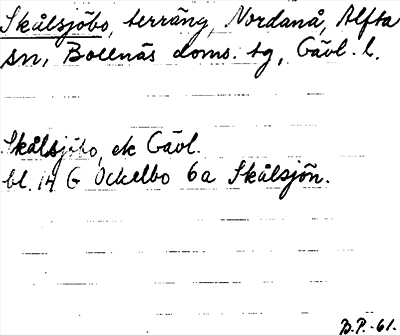 Skålsjöbo, terräng, Nordanå, Alfta
sn, Bollnäs doms. tg, Gävl. l.
Skålsjöbo, ek Gävl.
bl. 14 G Ockelbo 6a Skålsjön.
B.P. -61.